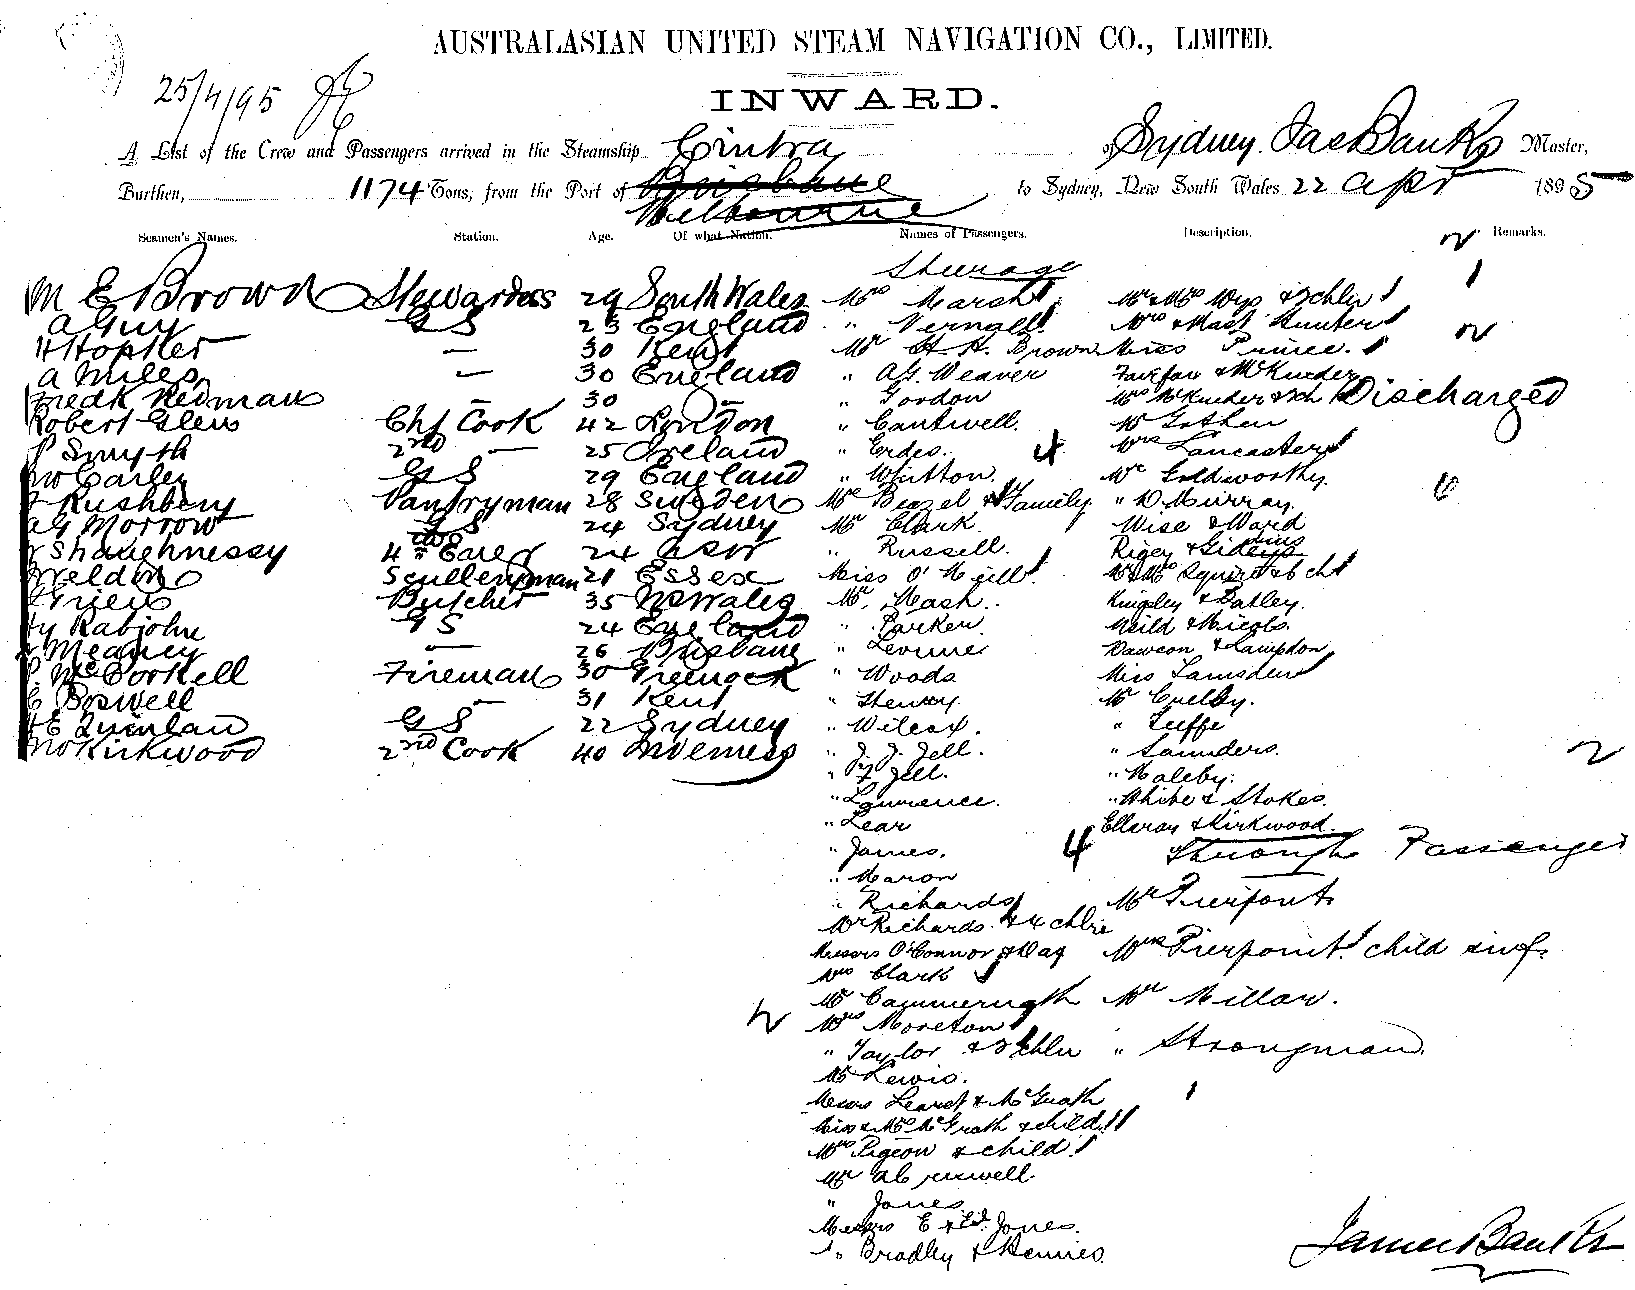 AUSTRALASIAN UNITED STEAM NAVIGATION CO., LIMITED.
25/4/95
INWARD.
A List of the Crew and Passengers arrived in the Steamship Cintra of Sydney Jas Banks Master,
Burthen, 1174 Tons, from the Port of Brisbane to Sydney, New South Wales 22 Apr 1895
Melbourne
Seamen's Names. Station. Age. Of what Nation. Names of Passengers. Description. Remarks.
Steerage
M E Brown Stewardess 29 South Wales Mrs Marsh Mr & Mrs Wys & 3 chln 1
A Guy G S 23 England " Vernall Mrs & Mast Hunter
H Hopker — 30 Kent Mr H. H. Brown Miss Prince
A Miles — 30 England " A.G. Weaver Fairfax &
Fredk Redman — 30 — " Gordon Discharged
Robert Glen Chf Cook 42 London " Cantwell Mr
P Smyth 2nd — 25 Ireland " Erdes. 4 Mrs Lancaster
Jno Carley G S 29 England " Whitton Mr Goldsworthy
Rushbery Pantryman 28 Sweden Mr Beazel & Family " D. Murray
A G Morrow G S 24 Sydney Mr Clark Wise & Ward
Shaughnessy 4th 24 " Russell. Rigey &
Weldon Sculleryman 21 Essex Miss O'Neill Mr & Mrs Squire & 6 chn
Butcher 35 N S Wales Mr. Nash. Kingsley & Batley.
Hy Rabjohn G S 24 England " Parker Neild & Nicols.
Meaney — 26 Brisbane " Dawson & Lampdon
P. McCorkell Fireman 30 Greenock " Woods Miss Lamsden
C Boswell — 31 Kent " Henry Mr
H E Quinlan G S 22 Sydney " Wilcox. "
Jno Kirkwood 2nd Cook 40 Inverness " J. J. Jell. " Saunders. 2
" Jell. " Maleby.
" Lawrence. " White & Stokes.
" Lear Elleray & Kirkwood.
" James. 4 Through Passenger
" Maron
" Richards Mr Pierpont
Mr Richards & 4 chln
Messrs O'Connor & Day Mrs Pierpoint child & inf.
Mrs Clark
Mr Mr Millar.
Mrs Moreton
" Taylor & 3 chln " Strongman
Mr Lewis.
Messrs & McGrath
Miss & Mrs McGrath & child
Mrs Pigeon & child
Mr
" Jones
Messrs E & Jones.
" Bradley & Hennies
James Banks